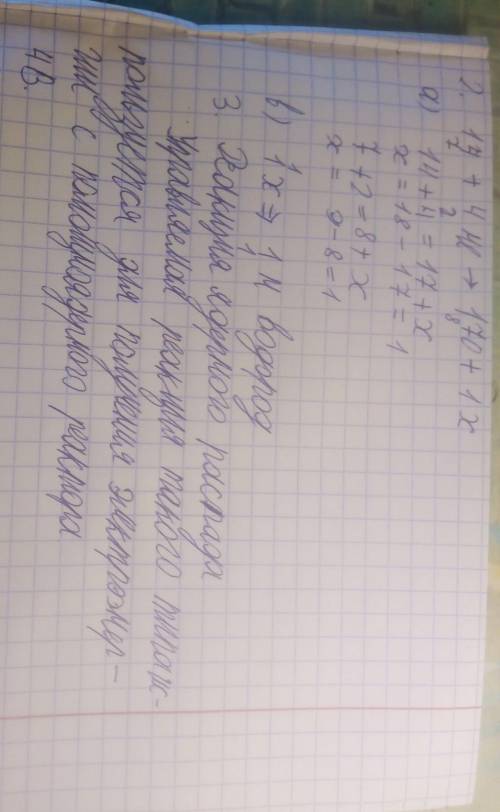 2. 14 7 + 4 2 He → 17 8 O + 1 x
a) 14+4=17+x
x=18-17=1
7+2=8+x
x=9-8=1
b) 1 1 x ⇒ 1 1 H водород
3. Реакция ядерного распада
управляемая реакция такого типа ис-
пользуется для получения электроэнер-
гии с помощью ядерного реактора
4B.